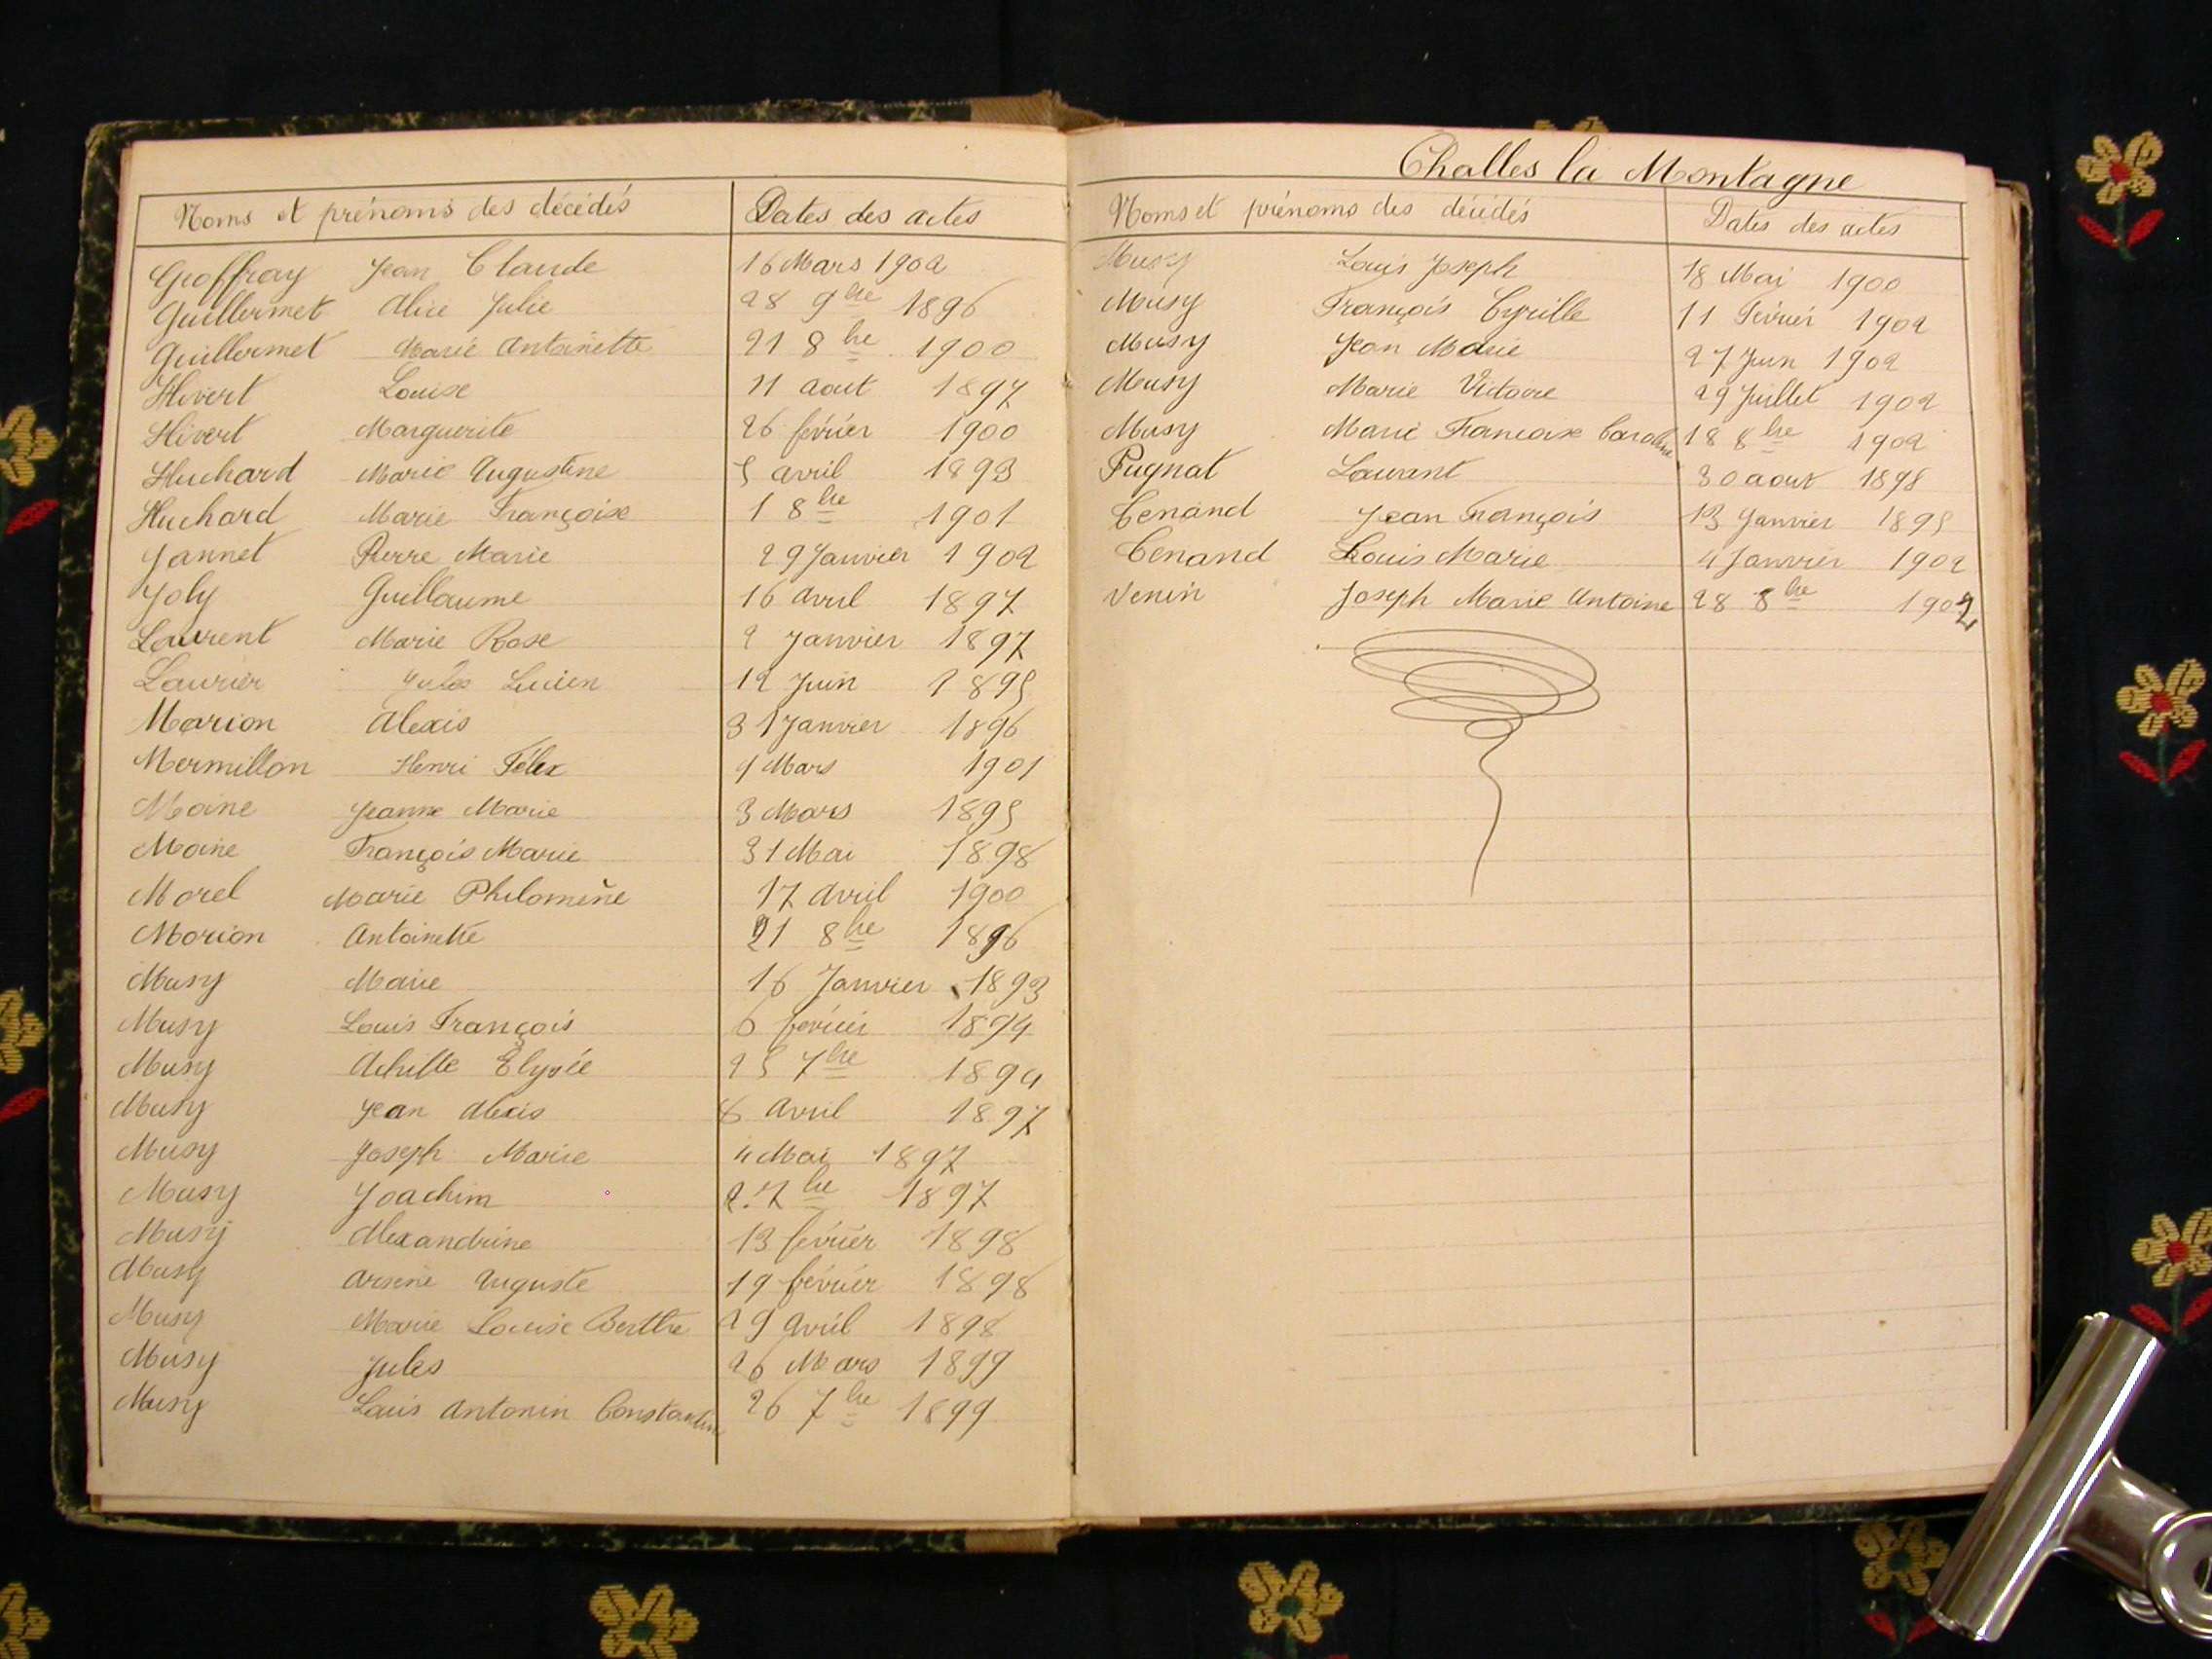 Noms et prénoms des décédés Dates des actes
Geoffray Jean Claude 16 Mars 1902
Guillermet Alice Julie 28 9bre 1896
Guillermet Marie Antoinette 21 8bre 1900
Hivert Louise 11 aout 1897
Hivert Marguerite 26 février 1900
Huchard Marie Augustine 5 avril 1893
Huchard Marie Françoise 1 8bre 1901
Jannet Pierre Marie 29 Janvier 1902
Joly Guillaume 16 avril 1897
Laurent Marie Rose 2 Janvier 1897
Laurier Jules Lucien 12 Juin 1895
Marion Alexis 31 Janvier 1896
Mermillon Henri Félix 1 Mars 1901
Moine Jeanne Marie 3 Mars 1895
Moine François Marie 31 Mai 1898
Morel Marie Philomène 17 Avril 1900
Morion Antoinette 21 8bre 1896
Musy Marie 16 Janvier 1893
Musy Louis François 6 février 1894
Musy Achille Elysée 25 7bre 1894
Musy Jean Alexis 8 Avril 1897
Musy Joseph Marie 4 Mai 1897
Musy Joachim 2. 7bre 1897
Musy Alexandrine 13 février 1898
Musy Arsène Auguste 19 février 1898
Musy Marie Louise Berthe 29 Avril 1898
Musy Jules 26 Mars 1899
Musy Louis Antonin Constantin 26 7bre 1899
Challes la Montagne
Noms et prénoms des décédés Dates des actes
Musy Louis Joseph 18 Mai 1900
Musy François Cyrille 11 Février 1902
Musy Jean Marie 27 Juin 1902
Musy Marie Victoire 29 Juillet 1902
Musy Marie Francoise Caroline 18 8bre 1902
Pugnat Laurent 30 aout 1898
Tenand Jean François 13 Janvier 1895
Tenand Louis Marie 4 Janvier 1902
Venin Joseph Marie Antoine 28 8bre 1902